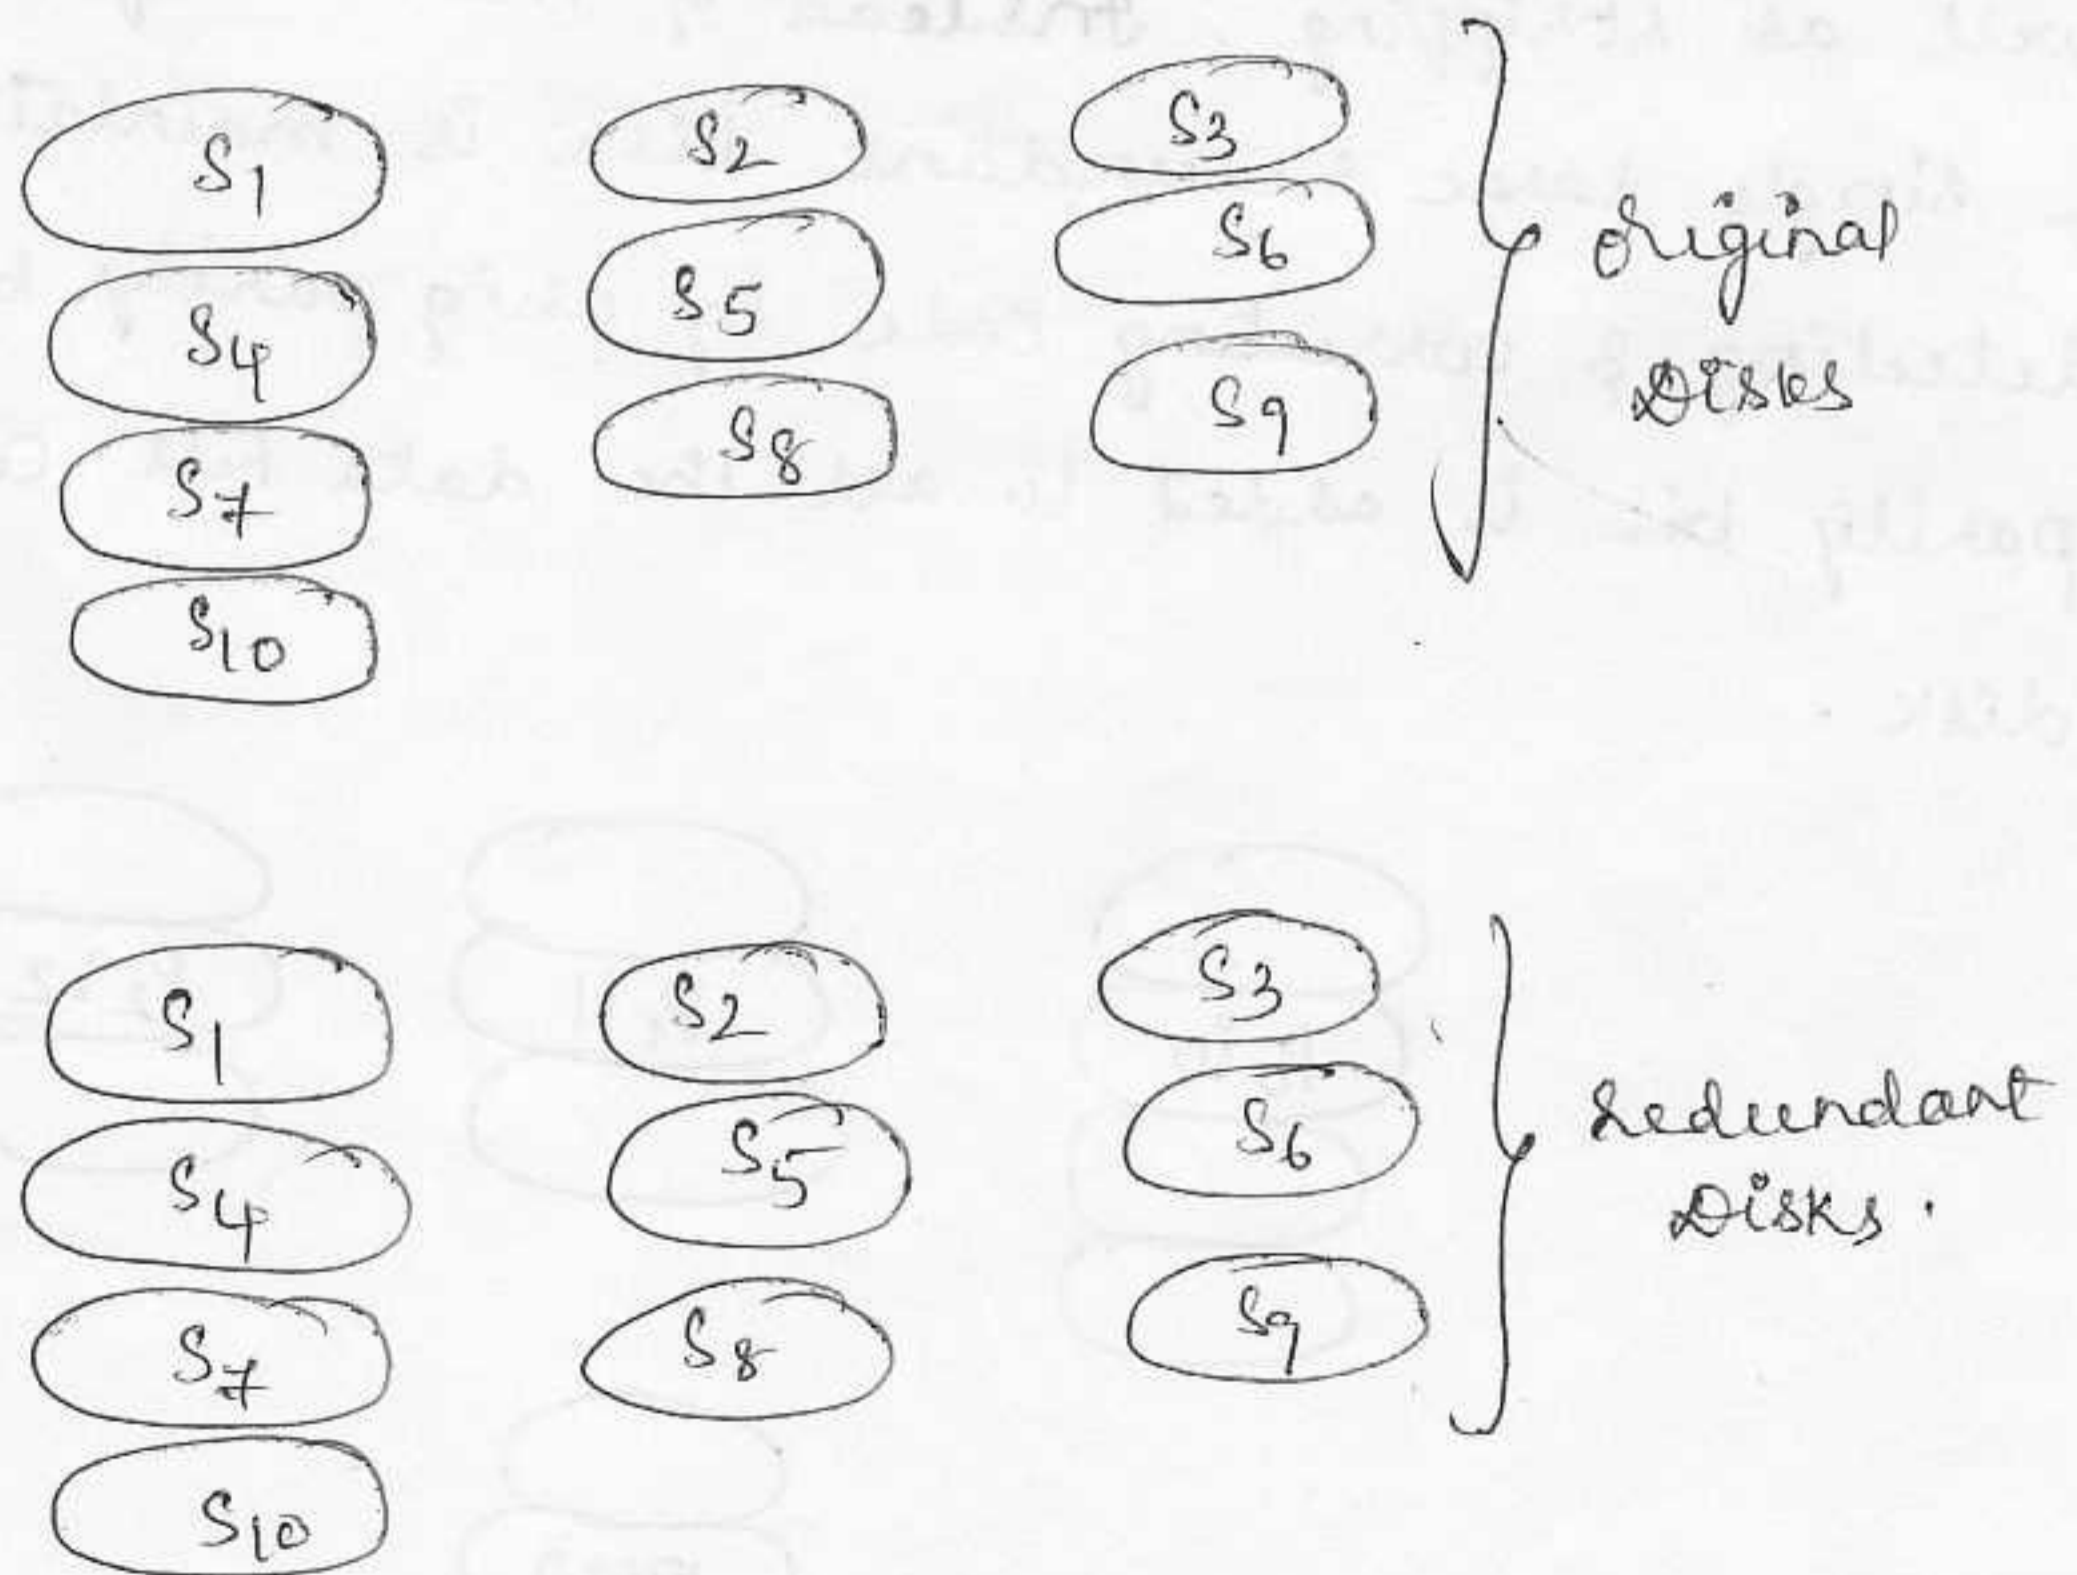 S1 S2 S3
S4 S5 S6
S7 S8 S9
S10
Original
Disks
S1 S2 S3
S4 S5 S6
S7 S8 S9
S10
Redundant
Disks.